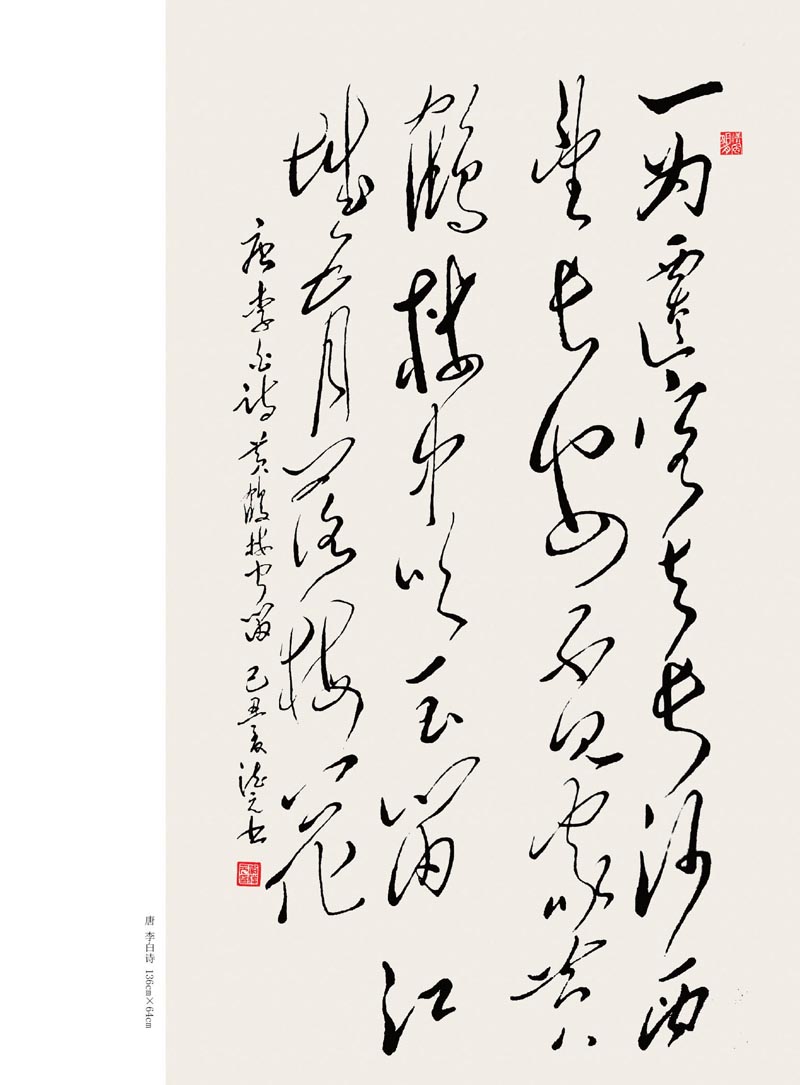 一为遷客去长沙西
望长安不见家黄
鶴楼中吹玉笛江
城五月落梅花
唐李白诗黄鶴楼闻笛 己丑夏元书
唐 李白诗 136cm×64cm